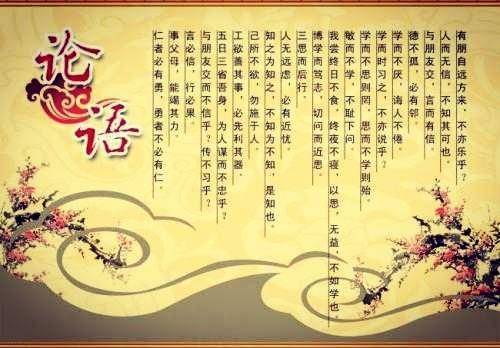 论语
有朋自远方来，不亦乐乎？
人而无信，不知其可也。
与朋友交，言而有信。
德不孤，必有邻。
学而不厌，诲人不倦。
学而时习之，不亦说乎？
学而不思则罔，思而不学则殆。
敏而不学，不耻下问。
我尝终日不食，终夜不寝，以思，无益，不如学也。
博学而笃志，切问而近思
三思而后行。
人无远虑，必有近忧。
知之为知之，不知为不知，是知也。
己所不欲，勿施于人。
工欲善其事，必先利其器。
五日三省吾身，为人谋而不忠乎？
与朋友交而不信乎？传不习乎？
言必信，行必果。
事父母，能竭其力。
仁者必有勇，勇者不必有仁。